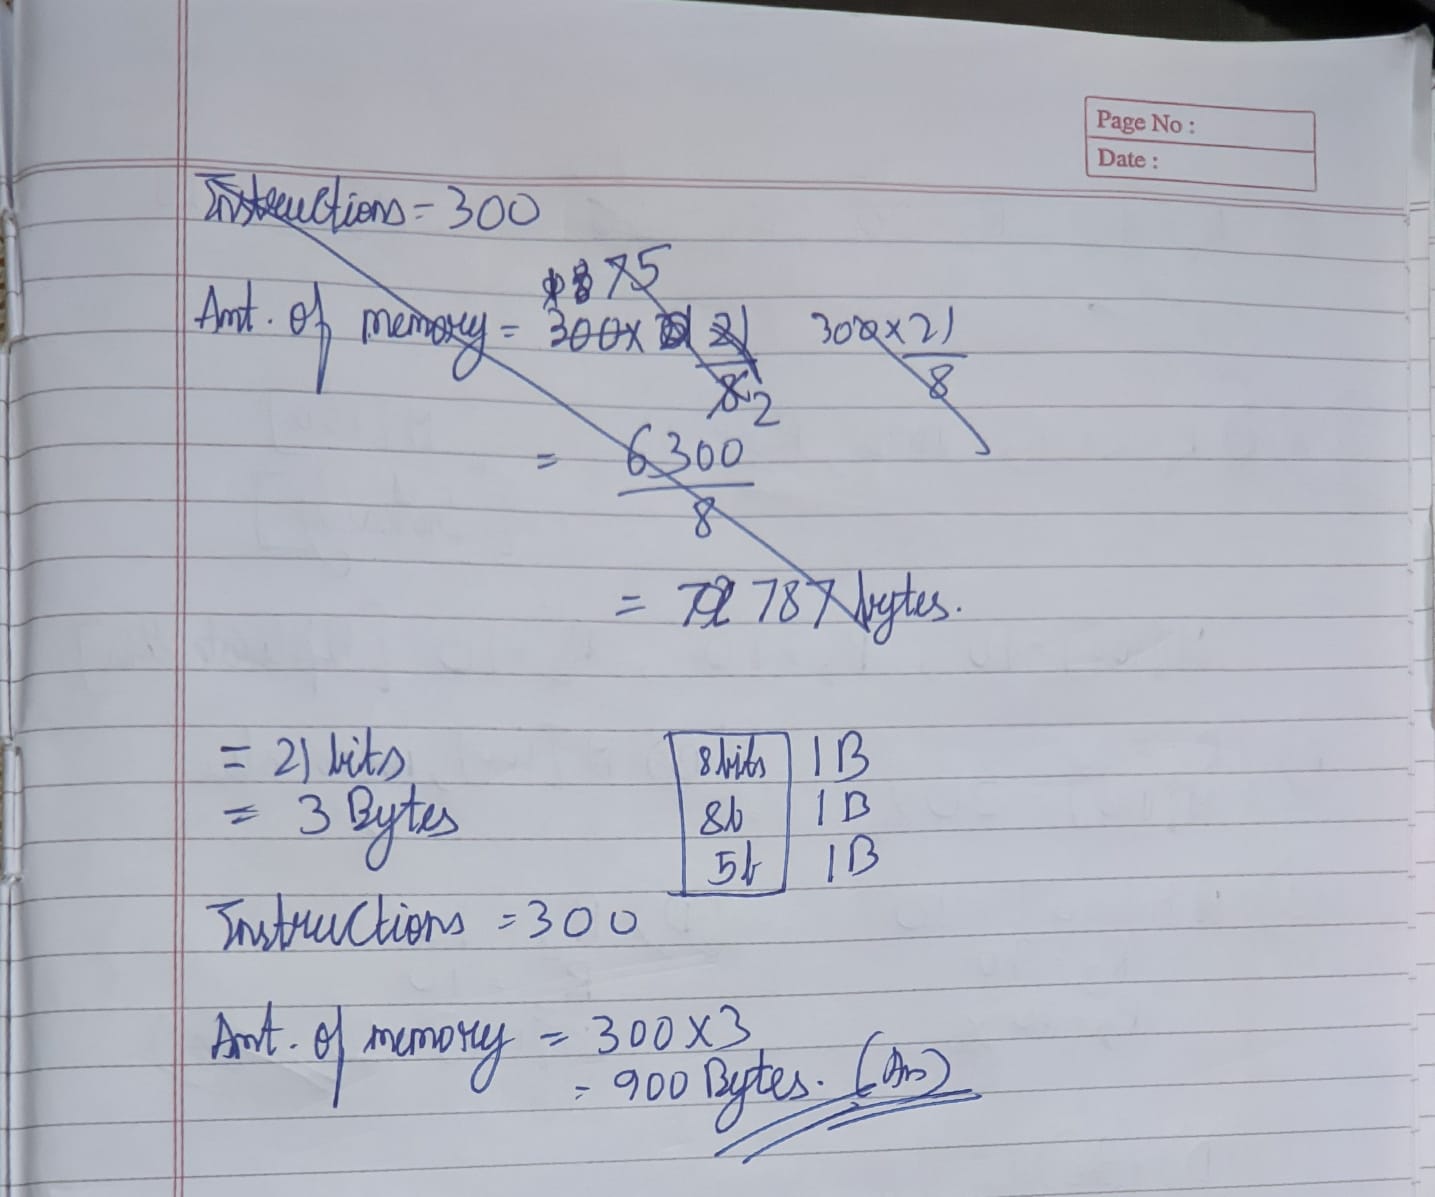 Page No :
Date :
Instructions = 300
75
Amt. of memory = 300 x 21 300 x 21
8 2 8
= 6300
8
= 787 bytes.
= 21 bits 8 bits 1 B
= 3 Bytes 8b 1 B
5b 1 B
Instructions = 300
Amt. of memory = 300 x 3
= 900 Bytes. (Ans)